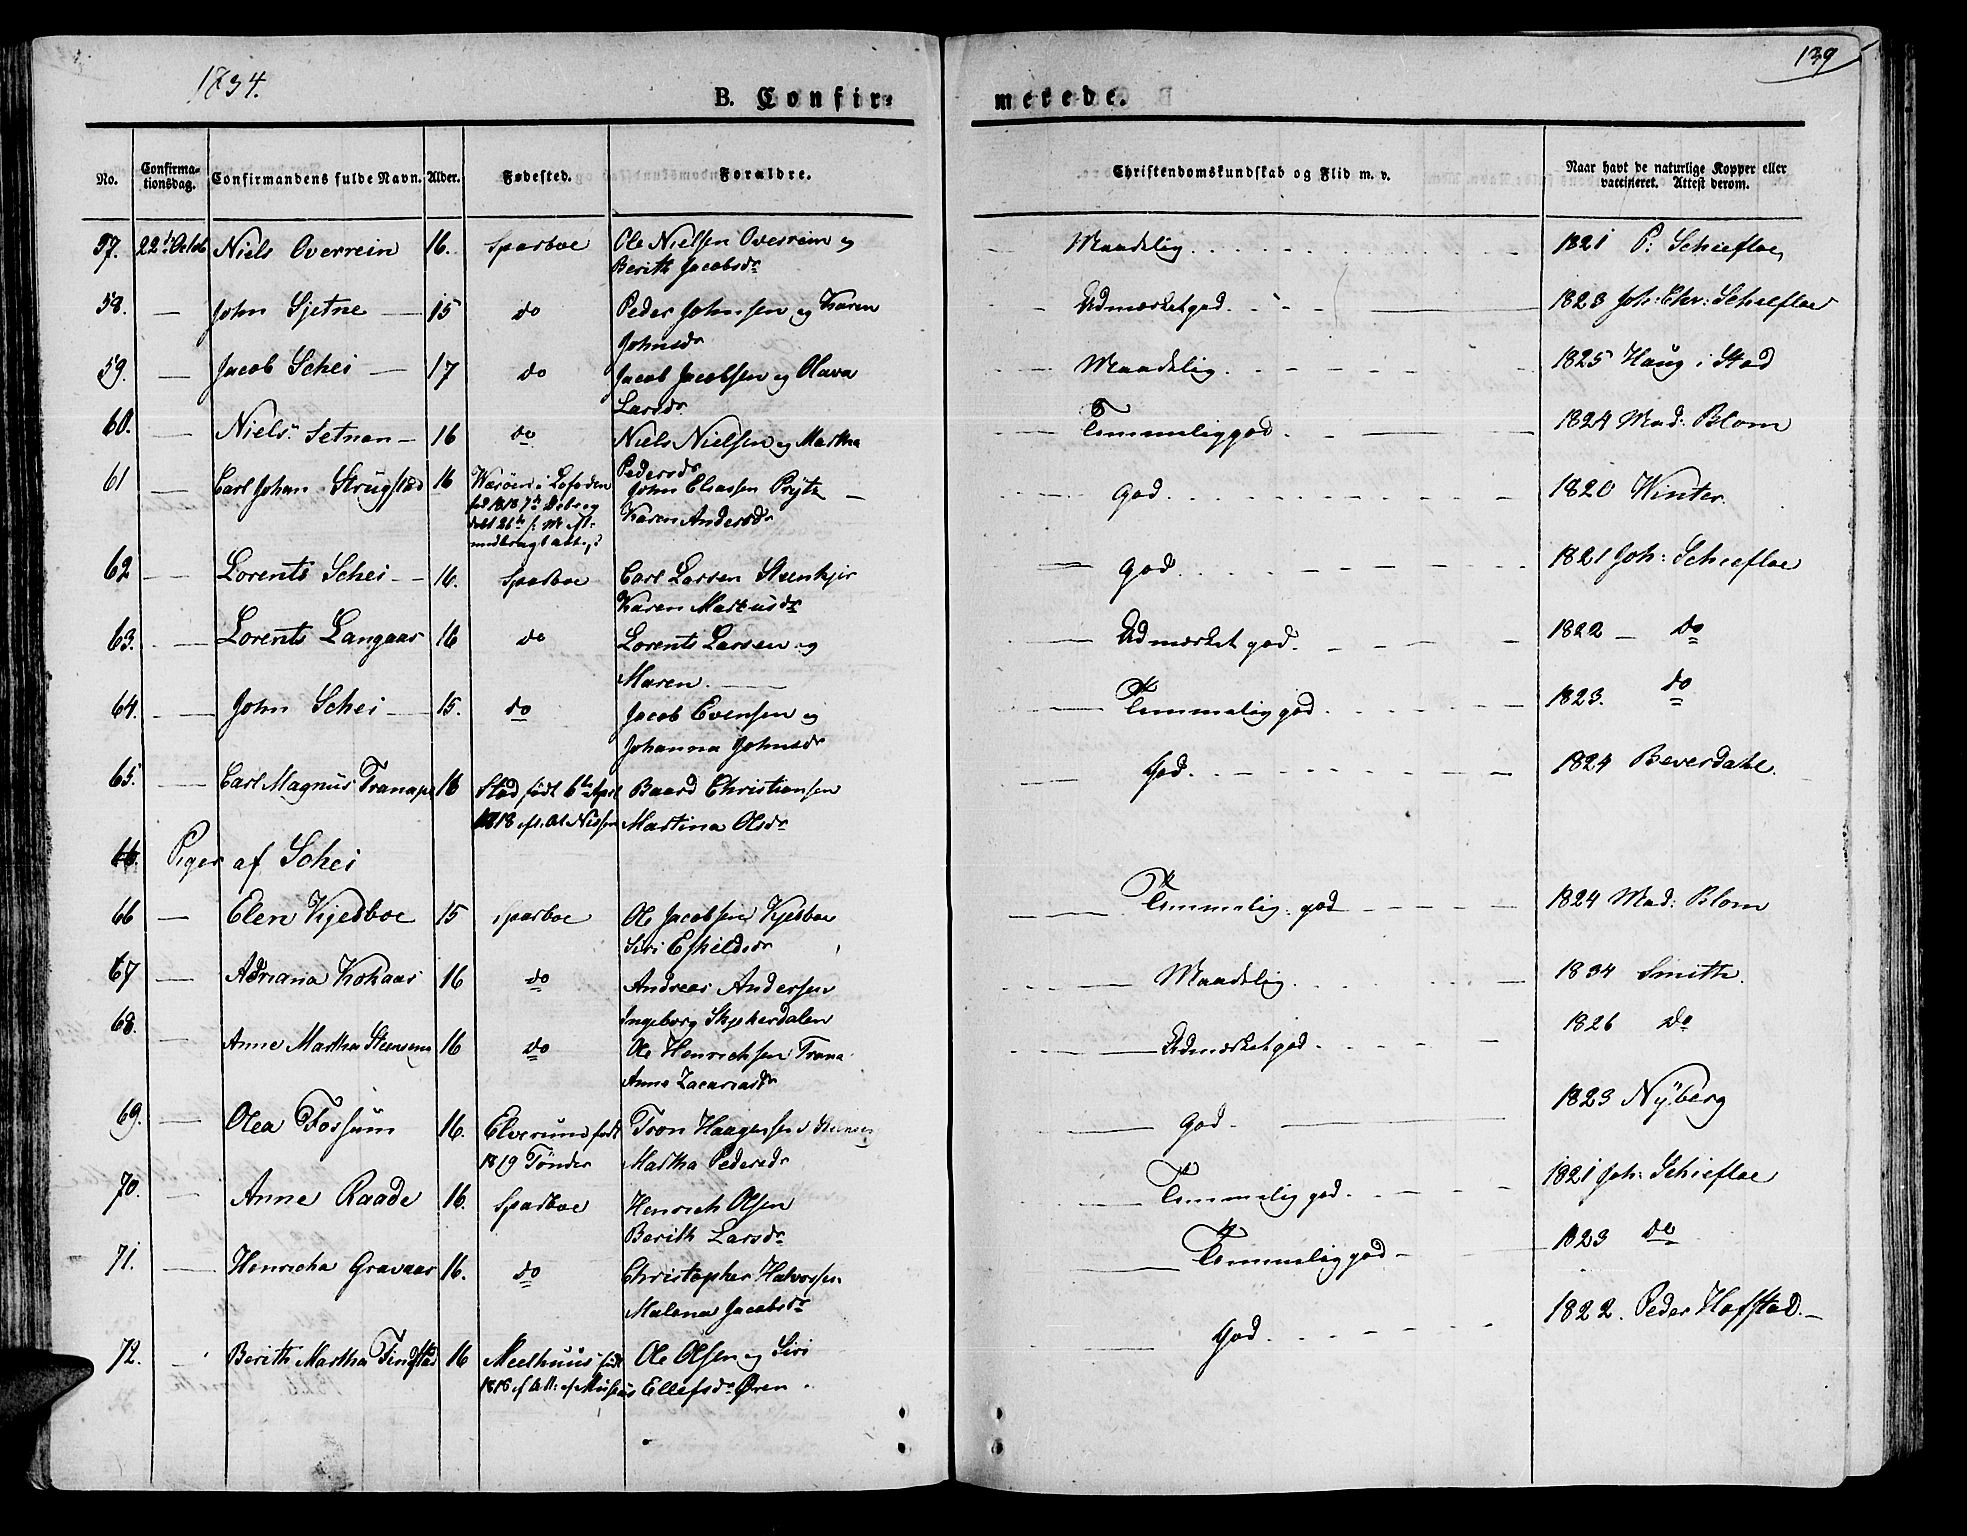 1834.
139
B. Confir-
merede.
No.
Confirma-
tionsdag.
Confirmandens fulde Navn.
Alder.
Fødested.
Forældre.
Christendomskundskab og Flid m. v.
Naar havt de naturlige Kopper eller
vaccineret. Attest derom.
57. 22de Octob Niels Overrein 16. Sparboe Ole Nielsen Overrein og Maadelig 1821 P: Schiefloe
Berith Jacobsdr
58. — John Sjetne — 15 do Peder Johnsen og Karen Udmærket god. 1823 Joh: Chr: Schiefloe
Johnsdr
59. — Jacob Schei — 17 do Jacob Jacobsen og Olava Maadelig. 1825 Haug i Stod
Larsdr
60. — Niels Setnan — 16 do Niels Nielsen og Martha Temmelig god 1824 Mad: Blom
Pedersdr
61 — Carl Johan Strugstad 16 Værøen i Lofoden John Eliassen Prytz — god 1820 Winter.
fød 1818 7de
Karen Andersdr
døbt 26de
62 — Lorents Schei — 16. Sparboe Carl Larsen Steenkjer god 1821 Joh: Schiefloe
Karen Mortensdr
63. — Lorents Langaas 16 do Lorents Larsen og Udmærket god. 1822 — do
Maren.
64. — John Schei — 15. do Jacob Evensen og Temmelig god 1823. do
Johanna Johnsdr
65. — Carl Magnus Tranapl 16 Stod født 6te Apri Baard Christiansen God. 1824 Beverdahl.
1818 Nissen Martina Olsdr
66. Piger af Schei
66 — Elen Kjesboe 15 Sparboe Ole Jacobsen Kjesboe Temmelig god 1824 Mad: Blom
Siri Eskildsdr
67 — Adriana Kokaas 16 do Andreas Andersen Maadelig. 1834 Smith.
Ingeborg Skjekerdalen
68. — Anne Martha Steensms 16 do Ole Henrichsen Trana Udmærket god 1826 do
Anne Zacariasdr
69. — Olea Fossum 16. Elverum født Tron Haagensen god. 1823 Nyberg
1819 Tønder Martha Pedersdr
70. — Anne Raade 16. Sparboe Henrich Olsen Temmelig god. 1821 Joh: Schiefloe
Berith Larsdr
71. — Henricha Gravaas 16. do Christopher Halvorsen Temmelig god 1823 do
Malena Jacobsdr
72. — Berith Martha Findstad 16 Meelhuus født Ole Olsen og Siri God. 1822. Peder Hofstad. —
1818 Ellefsdr Øren